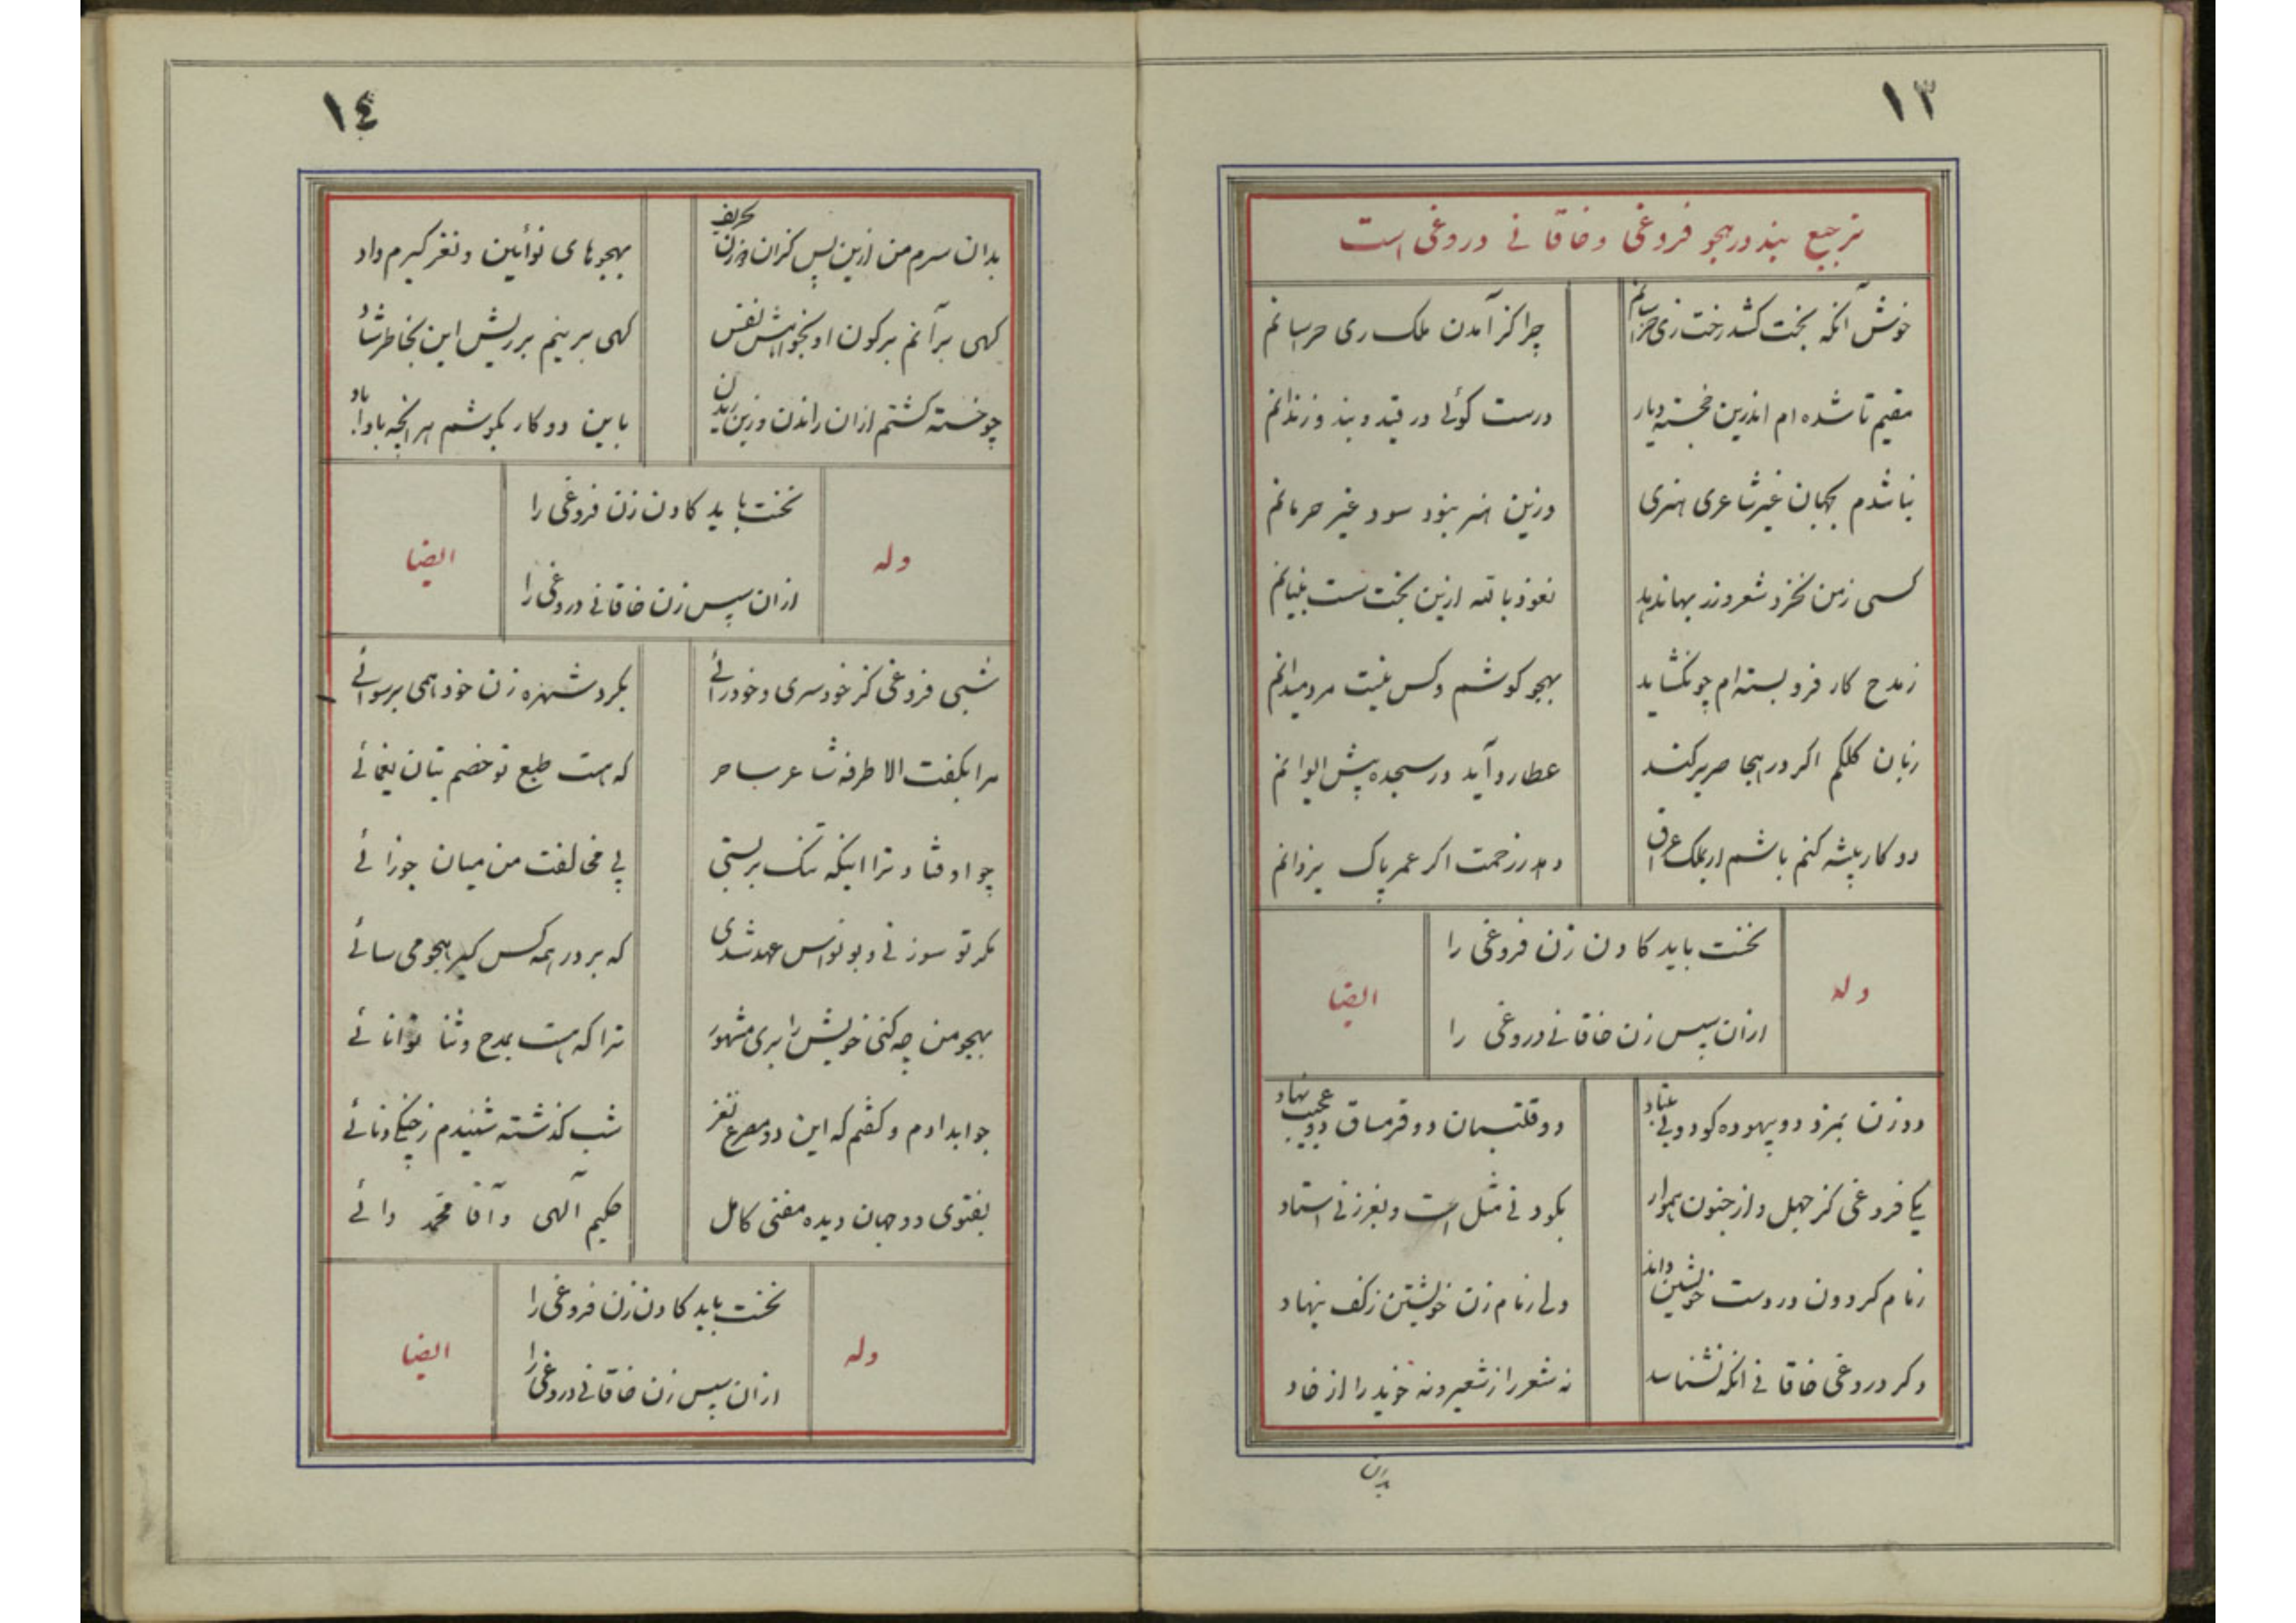 ١٣
ترجیع بند در هجو فروغی و خاقانی دروغی است
خوش آنکه بخت کشد رخت زی خراسانم چرا کز آمدن ملک ری هراسانم
مقیم تا شده ام اندرین خجسته دیار درست کوئی در قید و بند و زندانم
نباشدم بجهان غیر شاعری هنری وزین هنر نبود سود غیر حرمانم
کسی ز من نخرد شعر و زر بها ندهد نعوذ بالله ازین بخت سست بنیانم
ز مدح کار فرو بسته ام چو نکشاید بهجو کوشم و کس نیست مرد میدانم
زبان کلکم اکر در هجا صریر کند عطارد آید در سجده پیش ایوانم
دو کار پیشه کنم باشم ار بملک عراق دهد ز رحمت اکر عمر پاک یزدانم
وله
نخست باید کادن زن فروغی را
ازان سپس زن خاقانی دروغی را
ایضا
دو زن بمزد دو بیهوده کو دو بی بنیاد دو قلتبان دو قرمساق دو عجیب نهاد
یکی فروغی کز جهل و از جنون هموار بکودنی مثل است و بغرزنی استاد
زمام کردون در دست خویشتن داند ولی زمام زن خویشتن ز کف بنهاد
وکر دروغی خاقانی انکه نشناسد نه شعر را ز شعیر و نه خوید را از خاد
بدان
١٤
بدان سرم من ازین پس کزان حریف بهجوهای نوآیین و نغز کیرم داد
کهی برآنم بر کون او بخواهش نفس کهی برینم بر ریش این بخاطر شاد
چو خسته کشتم ازان راندن و زین ریدن باین دو کار بکوشم هر انچه بادا باد
وله
نخست باید کادن زن فروغی را
ازان سپس زن خاقانی دروغی را
ایضا
شبی فروغی کز خودسری و خودرائی بکرد شهره زن خود همی برسوائی
مرا بکفت الا طرفه شاعر ساحر که هست طبع تو خصم بتان یغمائی
چو اوفتاد ترا اینکه تنک بربستی پی مخالفت من میان جوزائی
مکر تو سوزنی و بونواس عهد شدی که بر در همه کس کیر هجو می سائی
بهجو من چه کنی خویش را بری مشهور ترا که هست بمدح و ثنا توانائی
جواب دادم و کفتم که این دو مصرع نغز شب کذشته شنیدم ز چنکی و نائی
بفتوی دو جهان دیده مفتی کامل حکیم الهی و آقا محمد دائی
وله
نخست باید کادن زن فروغی را
ازان سپس زن خاقانی دروغی را
ایضا